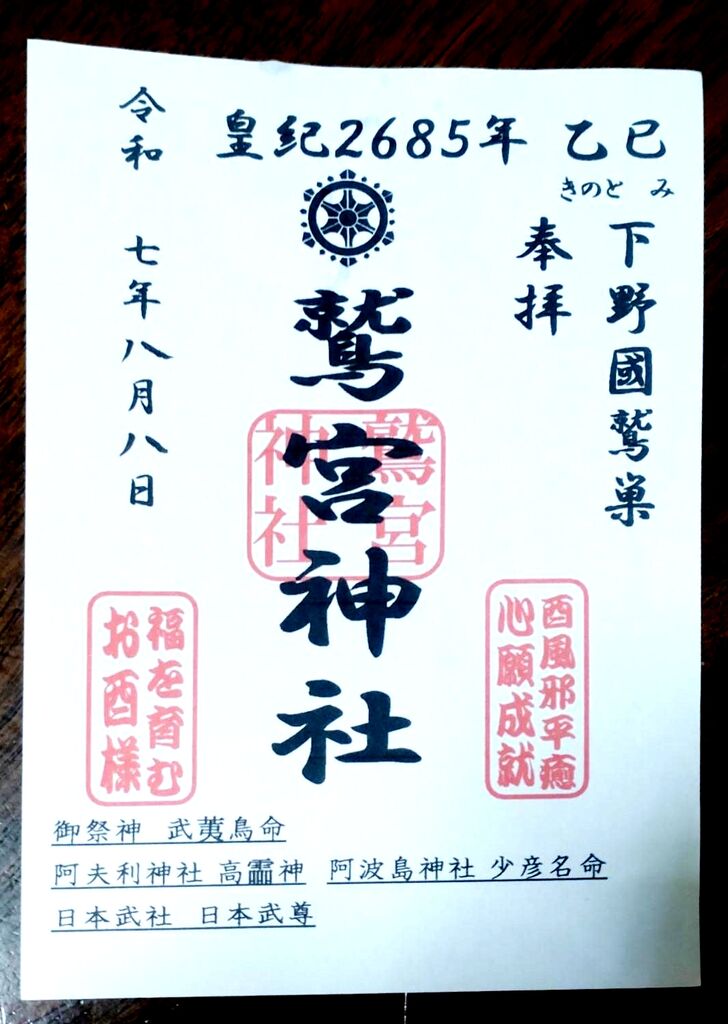 皇紀2685年 乙巳
きのと み
下野國鷲巣
奉拝
鷲宮神社
令和 七年八月八日
鷲宮
神社
酉風邪平癒
心願成就
福を育む
お酉様
御祭神 武夷鳥命
阿夫利神社 高龗神 阿波島神社 少彦名命
日本武社 日本武尊